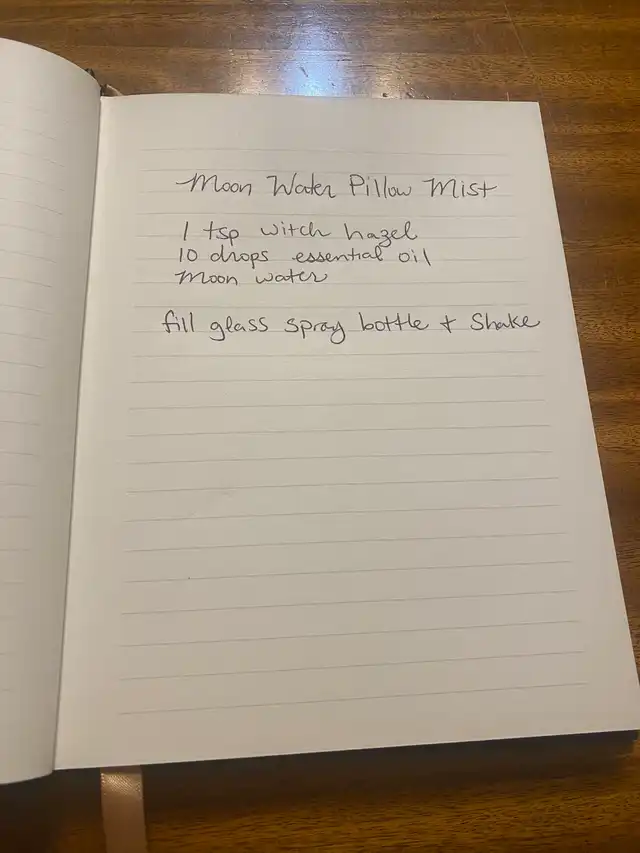 Moon Water Pillow Mist
1 tsp witch hazel
10 drops essential oil
Moon water
fill glass spray bottle + Shake